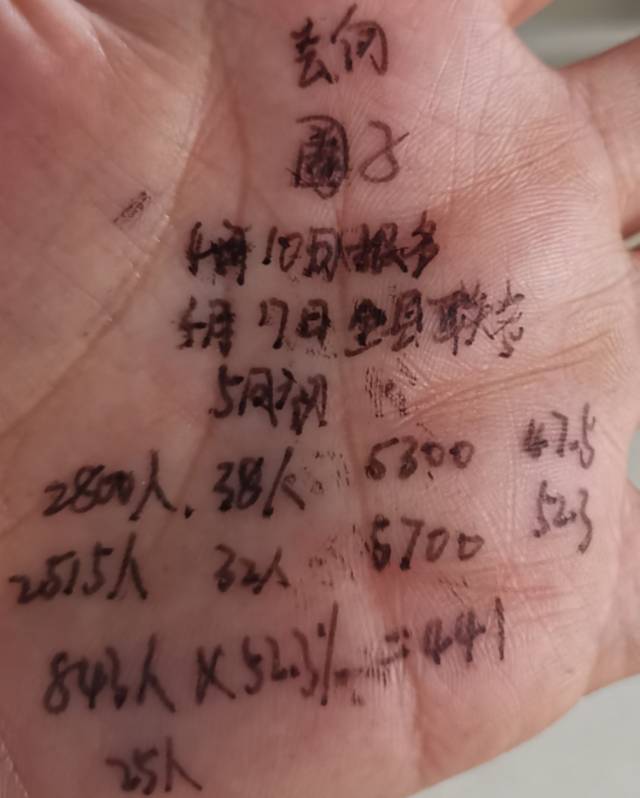 去向
圈子
4月10日报多
5月7日全县联考
5月初
2800人. 38人 5300 47.5
2515人 32人 5700 52.3
843人×52.3%=441
25人